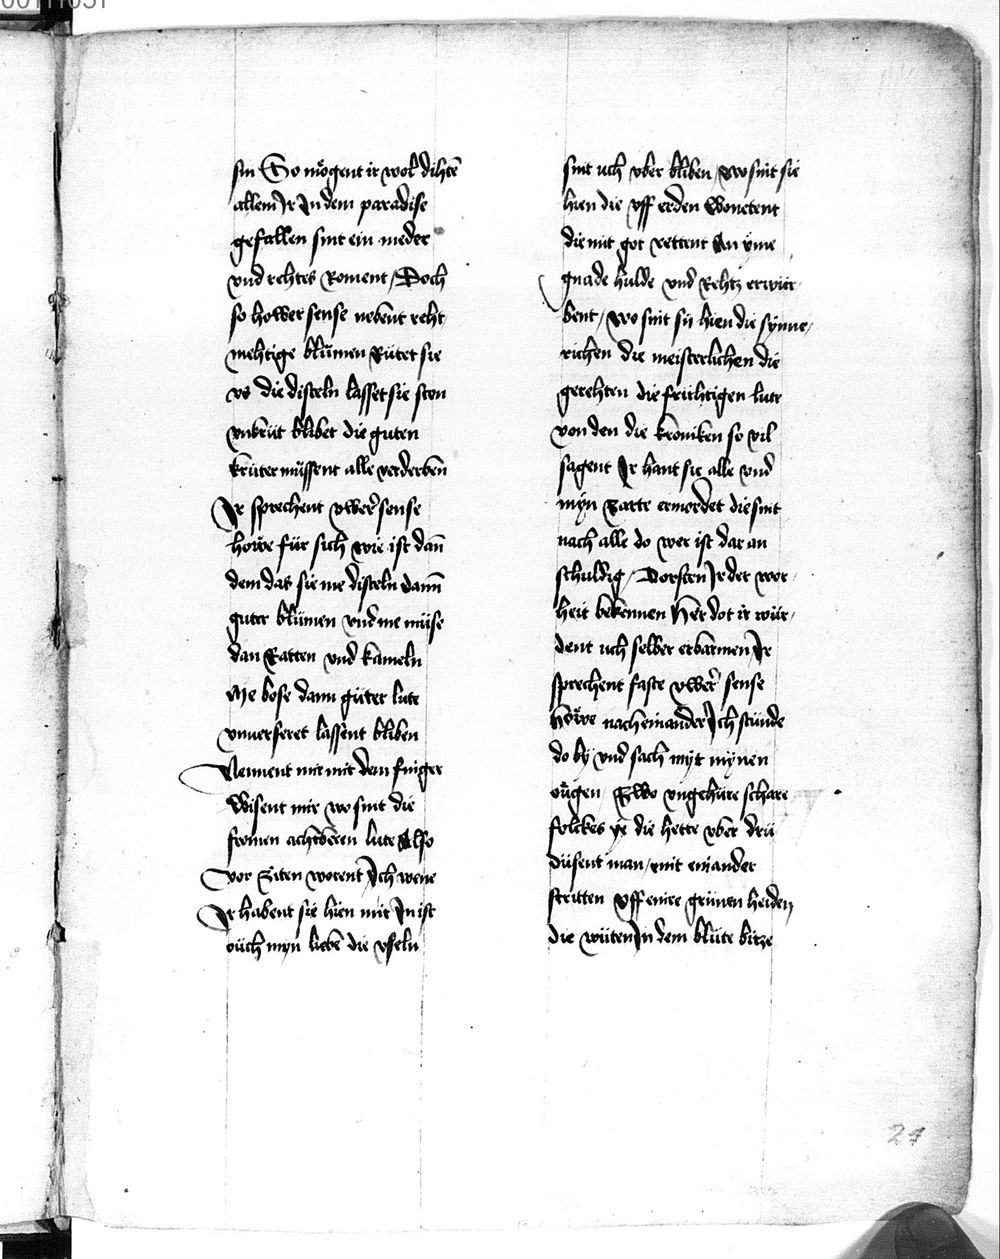 00111051
sin So moͤgent ir wol dihtē
allein Ir In dem paradise
gefallen sint ein meder
vnd rehtes Roment / Doch
so hower sense nebent reht
mehtige bluͤmen Rütet sie
vs die disteln lasset sie ston
vnkrüt blibet die guten
krüter müssent alle verderben
Ir sprechent vwer sense
howe für sich wie ist dañ
dem das sie me disteln dann
guter bluͤmen vnd me müse
dan Ratten vnd kameln
Me bose dann guter lute
vnuerseret lassent bliben
Nemment mir mit dem finger
Wisent mir wo sint die
fromen achtberen lute Also
vor Ziten worent Ich wene
Ir habent sie hien mit In ist
ouch myn liebe die vseln
sint uch vber bliben / wo sint sie
hien die vff erden Wonetent
die mit got rettent An yme
gnade hulde vnd Rehtz erwur
bent / wo sint sü hien die synne
richen die meisterlichen die
gerehten die fruhtigen lute
von den die kroniken so vil
sagent Ir hant sie alle vnd
myn Zarte ermordet die sint
nach alle do wer ist dar an
schuldig / Dorsten Ir der wor
heit bekennen Her dot ir wur
dent uch selber erbarmen Ir
sprechent faste vwer sense
Howe nach einander Ich stunde
do by vnd sach myt mynen
ougen / Zwo vngehüre schare
folckes ye die hette vber drü
Dusent man / mit einander
stritten vff einre grünen heiden
die wuten In dem blüte bitze
24